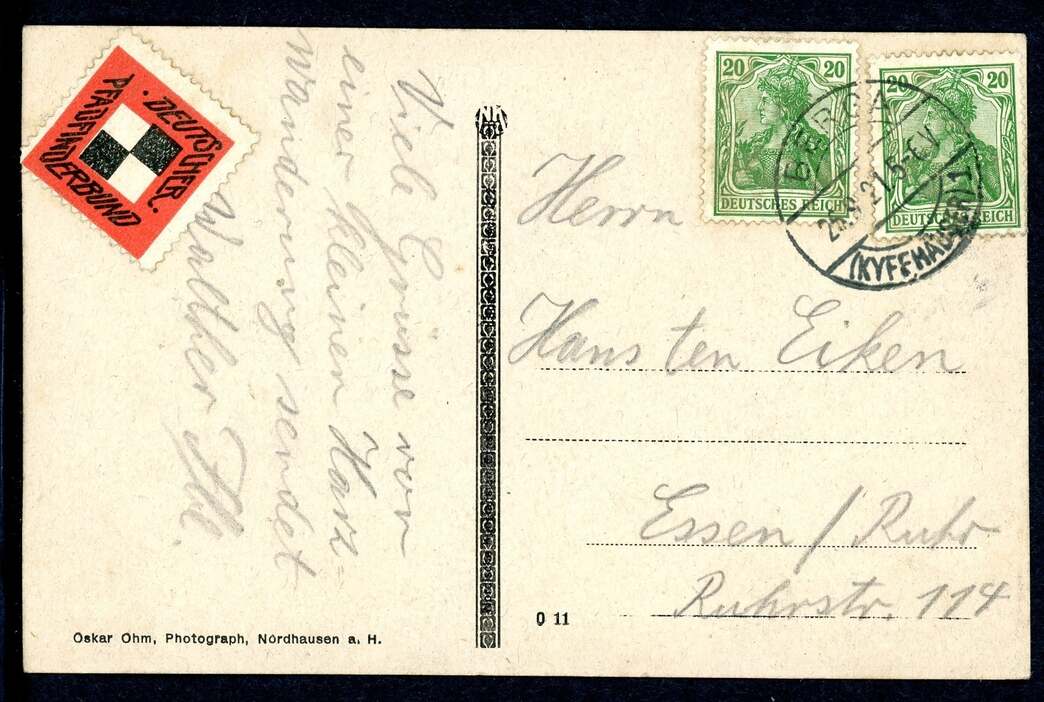 DEUTSCHER.
PFADFINDERBUND
Viele Grüsse von
einer kleinen Harz=
wanderung sendet
Walther
20 20
DEUTSCHES REICH
20 20
DEUTSCHES REICH
BERGA
21 5-6 V
(KYFFHÄUSER)
Herrn
Hans ten Eiken
Essen / Ruhr
Ruhrstr. 114
Oskar Ohm, Photograph, Nordhausen a. H.
O 11